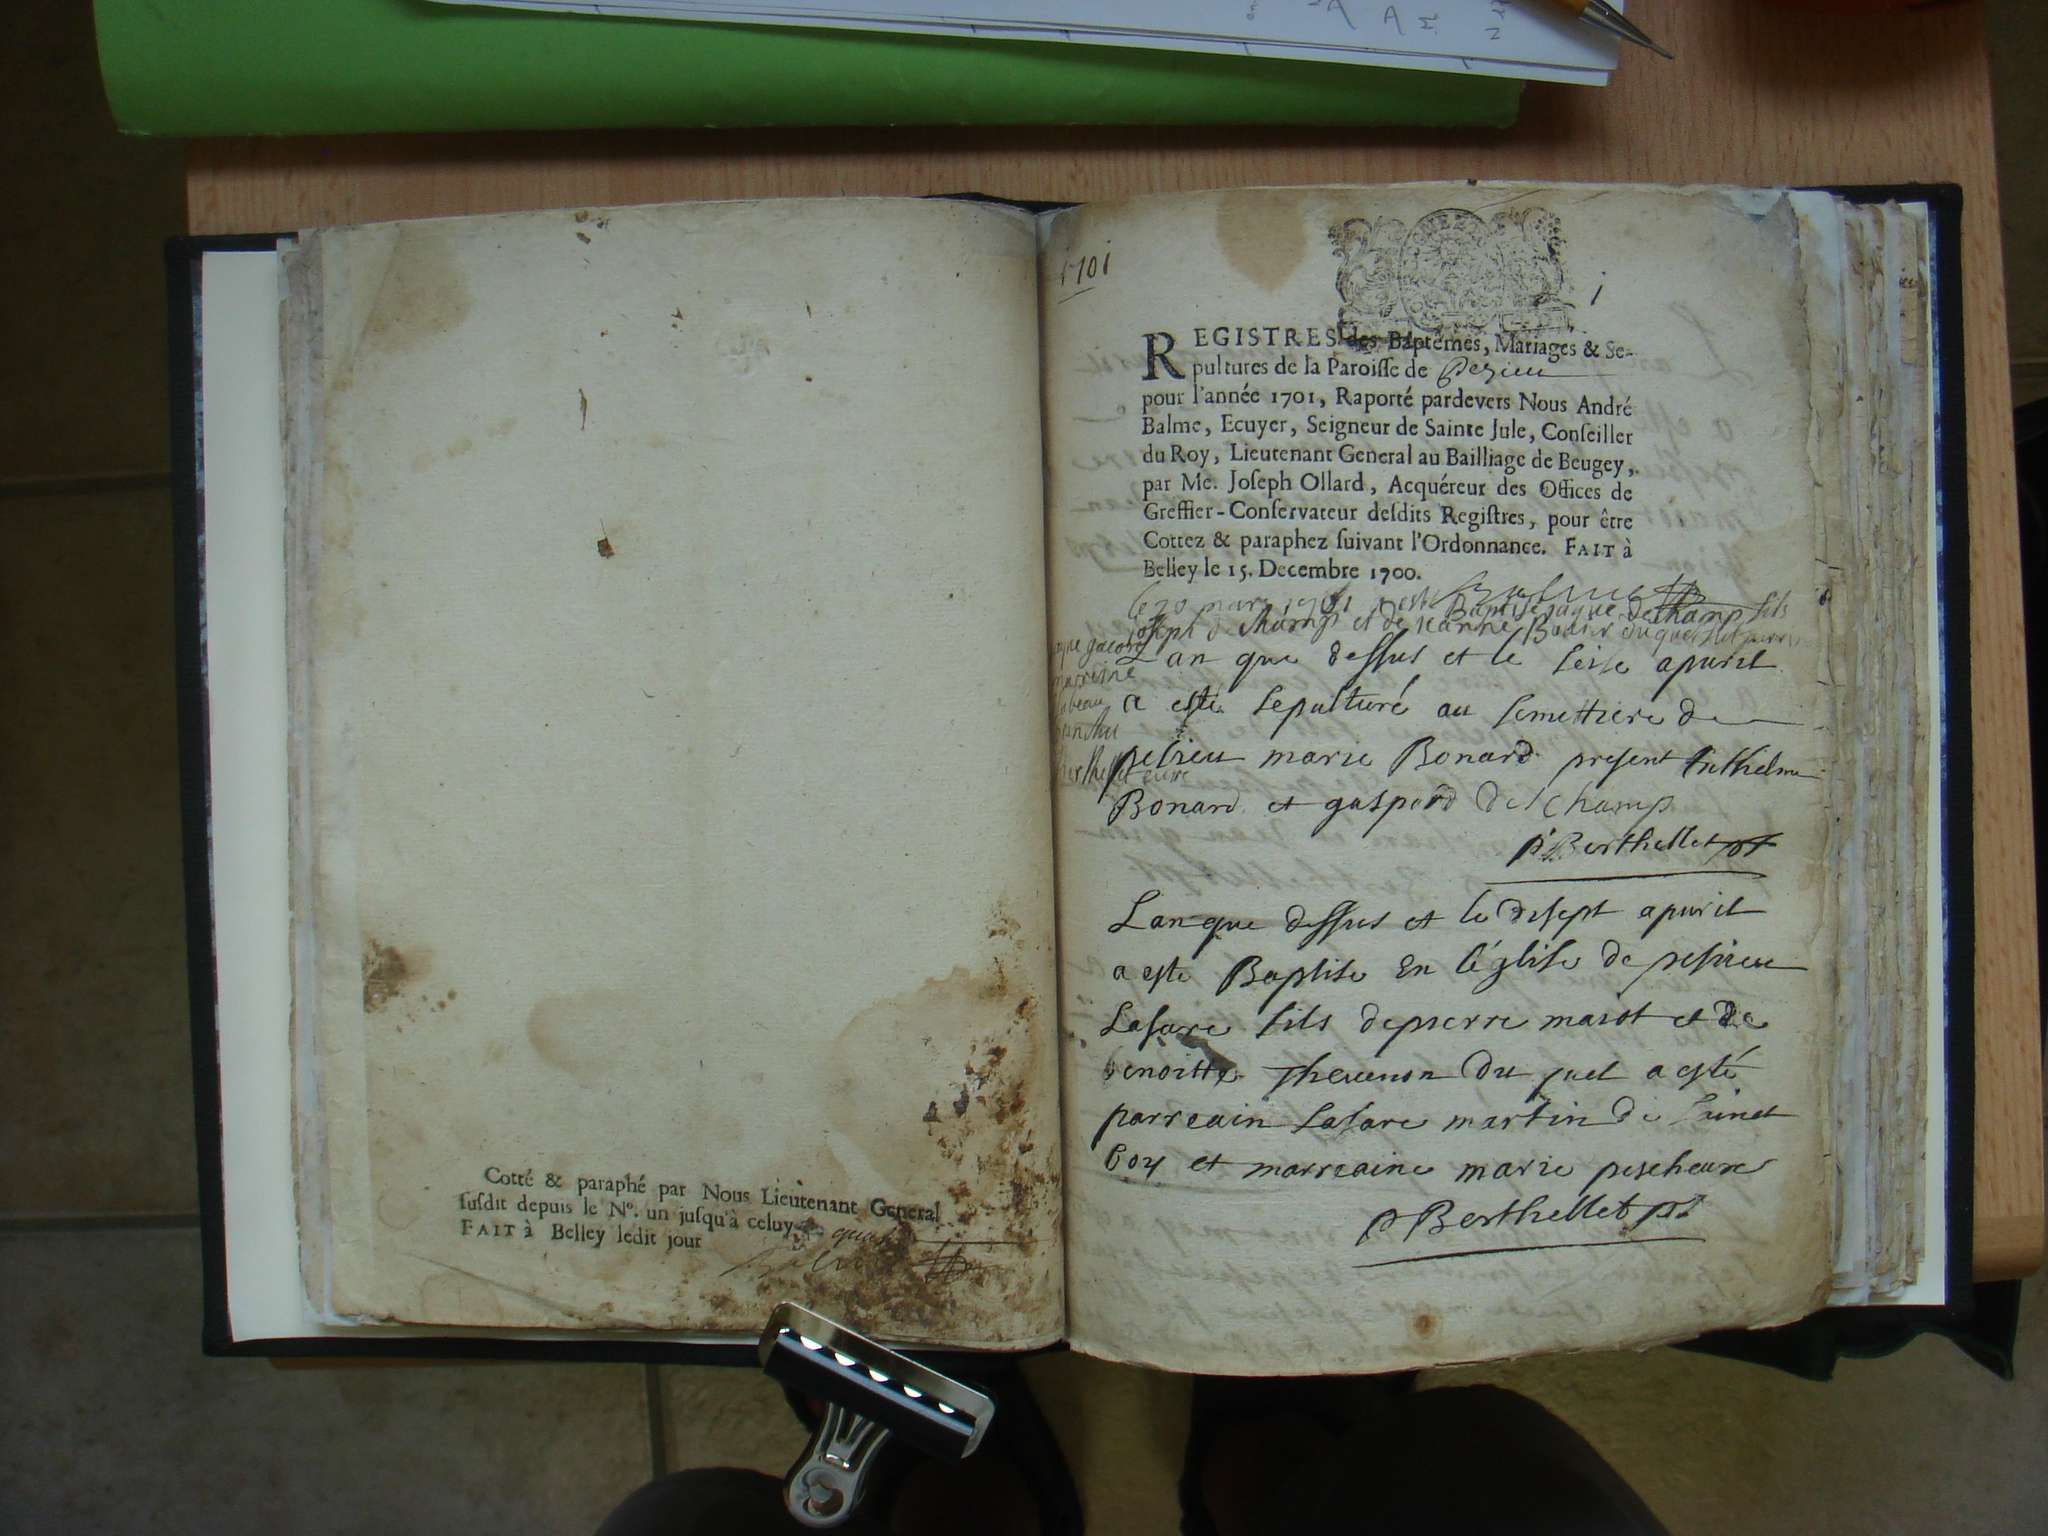 Cotté & paraphé par Nous Lieutenant General
susdit depuis le N°. un jusqu'à celuy
FAIT à Belley ledit jour
1701
1
REGISTRES des Baptêmes, Mariages & Se-
pultures de la Paroisse de Pezieu
pour l'année 1701, Raporté pardevers Nous André
Balme, Ecuyer, Seigneur de Sainte Jule, Conseiller
du Roy, Lieutenant General au Bailliage de Beugey,
par Me. Joseph Ollard, Acquéreur des Offices de
Greffier-Conservateur desdits Registres, pour être
Cottez & paraphez suivant l'Ordonnance. FAIT à
Belley le 15. Decembre 1700.
le 20 mars 1701 a esté Baptisé jaque deschamp fils
joseph deschamp et de jeanne
marrine
Lan que dessus et le seise apuril
a esté sepulturé au semettiere de
pesieu marie Bonard present Anthelme
Bonard et gaspard deschamp
p Berthellet
Lan que dessus et le disept apuril
a este Baptise En léglise de pesieu
Lasare fils de pierre maiot et de
benoitte Thevenon du juet a esté
parreain Lasare martin de sainct
boy et marreaine marie pescheure
p Berthellet